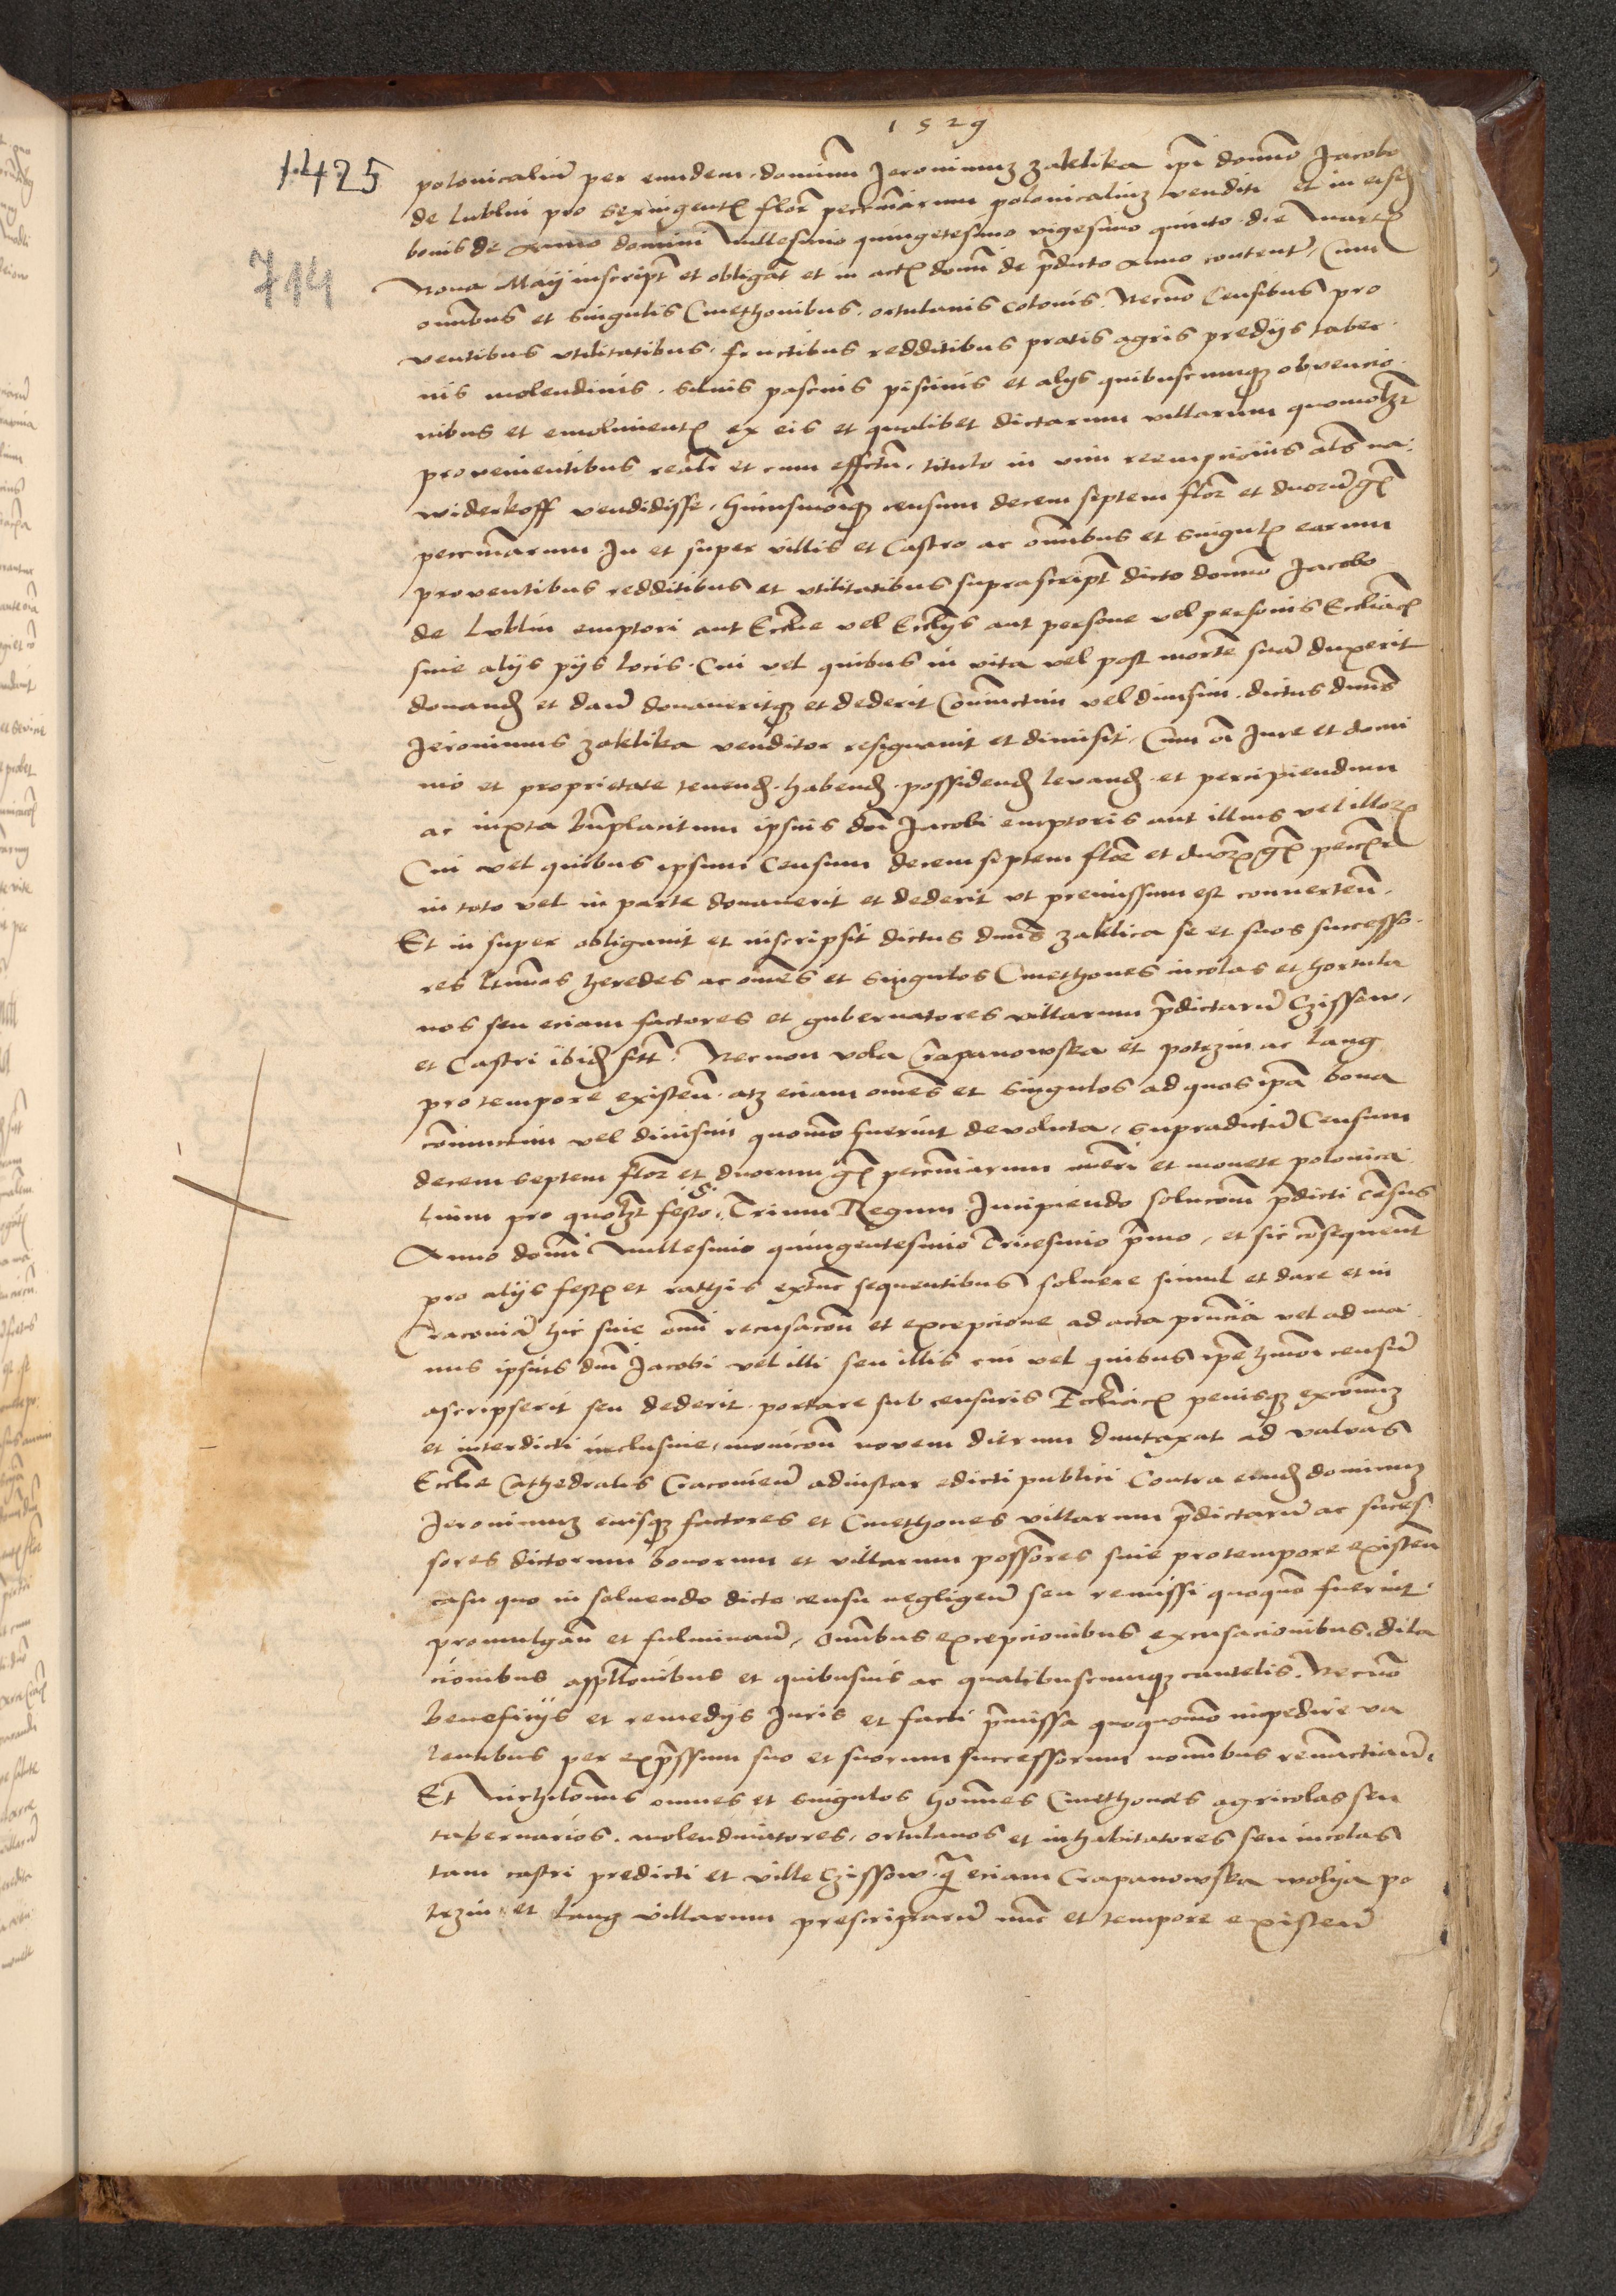 1529
1.425
714
polonicaliũ per eundem dominũ Jeronimuȝ zaklika ip̃i domino Jacobo
de Lublin pro sexingent flor̃ pecuniarum polonicaliuȝ venditi et in eisd
bonis de Anno domini Millesimo quingetesimo vigesimo quinto die Mart
Nona Maij inscript̃ et obligat̃ et in act domini de p̃dicto Anno content̃, Cum
omnibus et singulis Cmethonibus ortulanis colonis Necnõ Censibus pro
ventibus utilitatibus fructibus redditibus pratis agris predijs taber
nis molendinis siluis pascuis piscinis et alijs quibuscunqȝ obvencio
nibus et emoliment ex eis et qualibet dictarum villarum quomolȝt
provenientibus realr̃ et cum effectu, titulo in vim reempcionis al̃s na
widerkoff vendidisse, huiusmoĩqȝ censum decem septem flor̃ et duorũ gr
pecuniarum In et super villis et Castro ac omnibus et singul earum
proventibus redditibus et utilitatibus suprascript̃ dicto domino Jacobo
de Lublin emptori aut Eccl̃ie vel Eccl̃ijs aut persone vel personis Eccl̃iac
siue alijs pijs locis Cui vel quibus in vita vel post mortẽ suã duxerit
donand et dañ donaueritqȝ et dederit Coniunctim vel diuisim dictus dn̄s
Jeronimus zaklika venditor resignauit et dimisit, Cum oĩ Jure et domi
nio et proprietate tenend habend possidend levand et percipiendum
ac iuxta beñplacitum ipsius dñi Jacobi emptoris aut illius vel illor
Cui vel quibus ipsum Censum decem septem flor̃ et duor gr pecũ
in toto vel in parte donauerit et dederit ut premissum est conuerteñ
Et in super obligauit et inscripsit dictus dn̄s zaklica se et suos successo
res l̃timos heredes ac om̃es et singulos Cmethones incolas et hortula
nos seu eciam factores et gubernatores villarum p̃dictarũ Czissow
et Castri ibid sit̃ Necnon vola Crapanowska et potrzin ac Lang
pro tempore existeñ atȝ eciam om̃es et singulos ad quos ip̃a bona
coniunctim vel diuisim quom̃o fuerint devoluta, supradictũ Censum
decem septem flor̃ et duorum gr pecuniarum nũeri et monete polonica
lium pro quolȝt festo S. Trium Regum Incipiendo solucõm p̃dicti cẽsus
Anno domini Millesimo quingentesimo Tricesimo p̃mo, et sic cõsequent̃
pro alijs fest et rathis extunc sequentibus soluere simul et dare et in
Cracouiã hic siue om̃i recusacõn et excepcione ad acta p̃ncia vel ad ma
nus ipsius dñi Jacobi vel illi seu illis cui vel quibus ip̃e hm̃oi censũ
ascripserit seu dederit portare sub censuris Eccl̃iac penisqȝ excom̃uȝ
et interdicti inclusiue, monicõn novem dierum duntaxat ad valvas
Eccl̃ie Cathedralis Cracovieñ adinstar edicti publici Contra eund dominuȝ
Jeronimuȝ eiusqȝ factores et Cmethones villarum p̃dictarũ ac suces
sores dictorum bonorum et villarum poss̃ores siue protempore existeñ
casu quo in soluendo dicto censu negligeñ seu remissi quoquõ fuerint
promulgañ et fulminañ, Omnibus excepcionibus excusacionibus dila
cionibus appl̃lonibus et quibusuis ac qualibuscunqȝ cautelis Necnõ
beneficijs et remedijs Juris et facti p̃missa quoquom̃o impedire va
lentibus per exp̃ssum suo et suorum successorum nominibus renunciañ.
Et Nichilom̃us omnes et singulos hom̃es Cmethones agricolas seu
tabernarios molendinatores ortulanos et inhabitatores seu incolas
tam castri predicti et ville Czissow q̃ eciam Crapanowska wolya po
trzin et Lang villarum prescriptarũ nũc et tempore existeñ